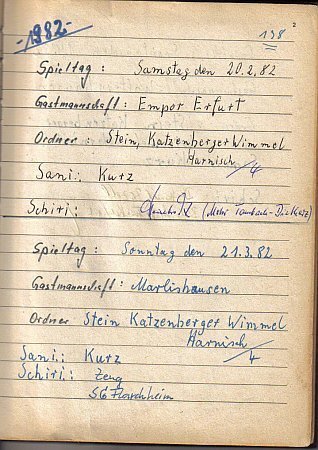 -1982-
2
138
Spieltag: Samstag den 20.2.82
Gastmannschaft: Empor Erfurt
Ordner: Stein, Katzenberger Wimmel
Harnisch /4
Sani.: Kurz
Schiri: (Mohr Tambach-Dietharz)
Spieltag: Sonntag den 21.3.82
Gastmannschaft: Marlishausen
Ordner Stein Katzenberger Wimmel
Harnisch /4
Sani.: Kurz
Schiri.: Zeng
SG